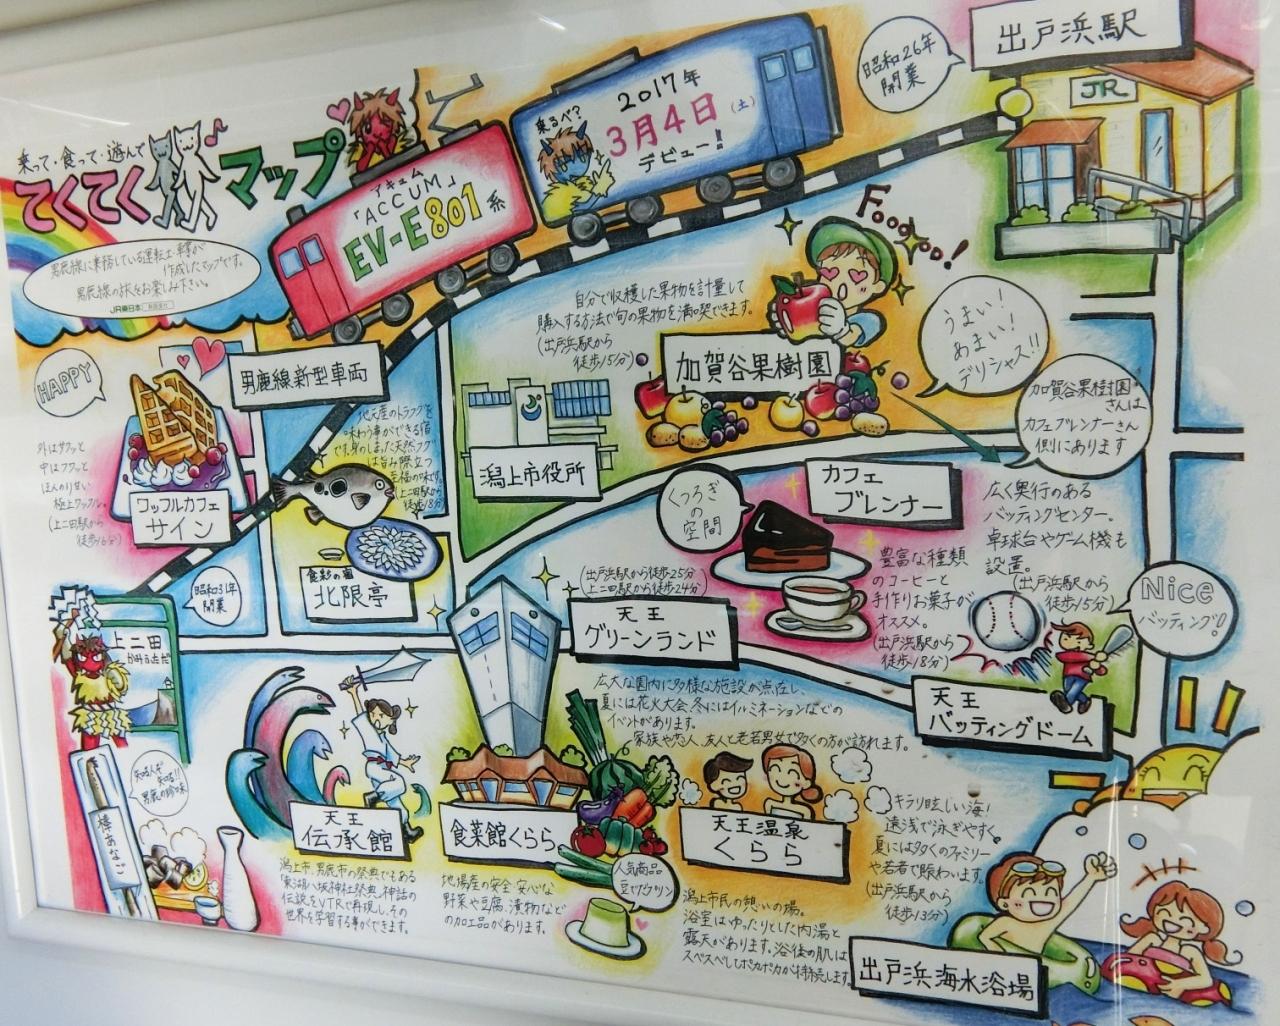 乗って・食って・遊んで
てくてくマップ
男鹿線に乗務している運転士・車掌が
作成したマップです。
男鹿線の旅をお楽しみ下さい。
JR東日本
アキュム
「ACCUM」
EV-E801系
来るべ?
2017年
3月4日(土)
デビュー!!
男鹿線新型車両
昭和26年
開業
出戸浜駅
JR
HAPPY
外はサクッと
中はフワッと
ほんのり甘い
極上ワッフル。
(上二田駅から
徒歩16分)
ワッフルカフェ
サイン
地元産のトラフグを
味わう事ができる宿
です。身のしまった天然フグ
は旨み際立つ
至福の味です。
(上二田駅から
徒歩18分)
食彩の宿
北限亭
自分で収穫した果物を計量して
購入する方法で旬の果物を満喫できます。
(出戸浜駅から
徒歩15分)
加賀谷果樹園
うまい!
あまい!
デリシャス!!
加賀谷果樹園
さんは
カフェブレンナーさん
側にあります
潟上市役所
くつろぎ
の
空間
カフェ
ブレンナー
豊富な種類
のコーヒーと
手作りお菓子が
オススメ。
(出戸浜駅から
徒歩18分)
広く奥行のある
バッティングセンター。
卓球台やゲーム機も
設置。
(出戸浜駅から
徒歩15分)
Nice
バッティング!
天王
バッティングドーム
(出戸浜駅から徒歩25分
上二田駅から徒歩24分)
天王
グリーンランド
広大な園内に多様な施設が点在し、
夏には花火大会、冬にはイルミネーションなどの
イベントがあります。
家族や恋人、友人と老若男女で多くの方が訪れます。
昭和31年
開業
上二田
かみふただ
知る人ぞ
知る!!
男鹿の珍味
棒あなご
天王
伝承館
潟上市、男鹿市の祭典でもある
「東湖八坂神社祭典」神話の
伝説をVTRで再現し、その
世界を学習する事ができます。
食菜館くらら
地場産の安全・安心な
野菜や豆腐、漬物など
の加工品があります。
人気商品
豆乳プリン
天王温泉
くらら
潟上市民の憩いの場。
浴室はゆったりとした内湯と
露天があります。浴後の肌は
スベスベしてポカポカが持続します。
キラリ眩しい海!
遠浅で泳ぎやすく、
夏には多くのファミリー
や若者で賑わいます。
(出戸浜駅から
徒歩13分)
出戸浜海水浴場